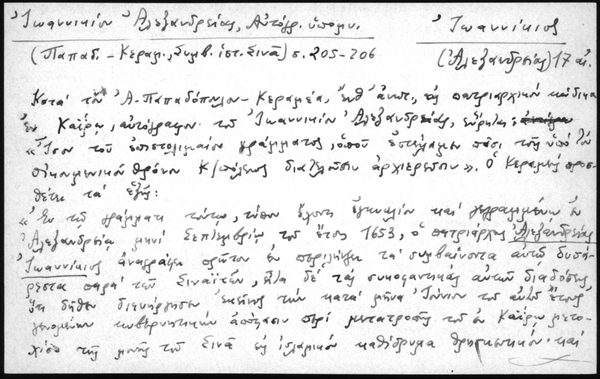 Ἰωαννικίου Ἀλεξανδρείας, Αὐτόγρ. ὑπομν.
Ἰωαννίκιος
(Παπαδ.-Κεραμ., Συμβ. ἱστ. Σινᾶ) σ. 205-206
(Ἀλεξανδρείας) 17 αἰ.
Κατὰ τὸν Ἀ-Παπαδόπουλον-Κεραμέα, ἔνθ' ἀνωτ., πατριαρχικὸν κώδικα
ἐν Καΐρῳ, αὐτόγραφον τοῦ Ἰωαννικίου Ἀλεξανδρείας,
«Ἴσον τοῦ ἐπιστολιμαίου γράμματος, ὁποῦ ἐστείλαμεν πᾶσι τοῖς ὑπὸ τὸν
οἰκουμενικὸν θρόνον Κ/πόλεως ἀρχιερεῦσιν». Ὁ Κεραμεὺς προσ-
θέτει τὰ ἑξῆς:
«Ἐν τῷ γράμματι τούτῳ, τύπον ἔχοντι ἐγκυκλίου καὶ γεγραμμένῳ ἐν
Ἀλεξανδρείᾳ μηνὶ Σεπτεμβρίῳ τοῦ ἔτους 1653, ὁ πατριάρχης Ἀλεξανδρείας
Ἰωαννίκιος ἀναγράφει πρῶτον ἐν περιλήψει τὰ συμβαίνοντα αὐτῷ δυσά-
ρεστα παρὰ τῶν Σιναϊτῶν, εἶτα δὲ τὰς συκοφαντικὰς αὐτῶν διαδόσεις
ὅτι δῆθεν διενήργησεν ἐκεῖνος τὴν κατὰ μῆνα Ἰούνιον τοῦ αὐτοῦ ἔτους
γενομένην κυβερνητικὴν ἀπόφασιν περὶ μετατροπῆς τοῦ ἐν Καΐρῳ μετο-
χίου τῆς μονῆς τοῦ Σινᾶ εἰς ἰσλαμικὸν καθίδρυμα θρησκευτικόν· καὶ